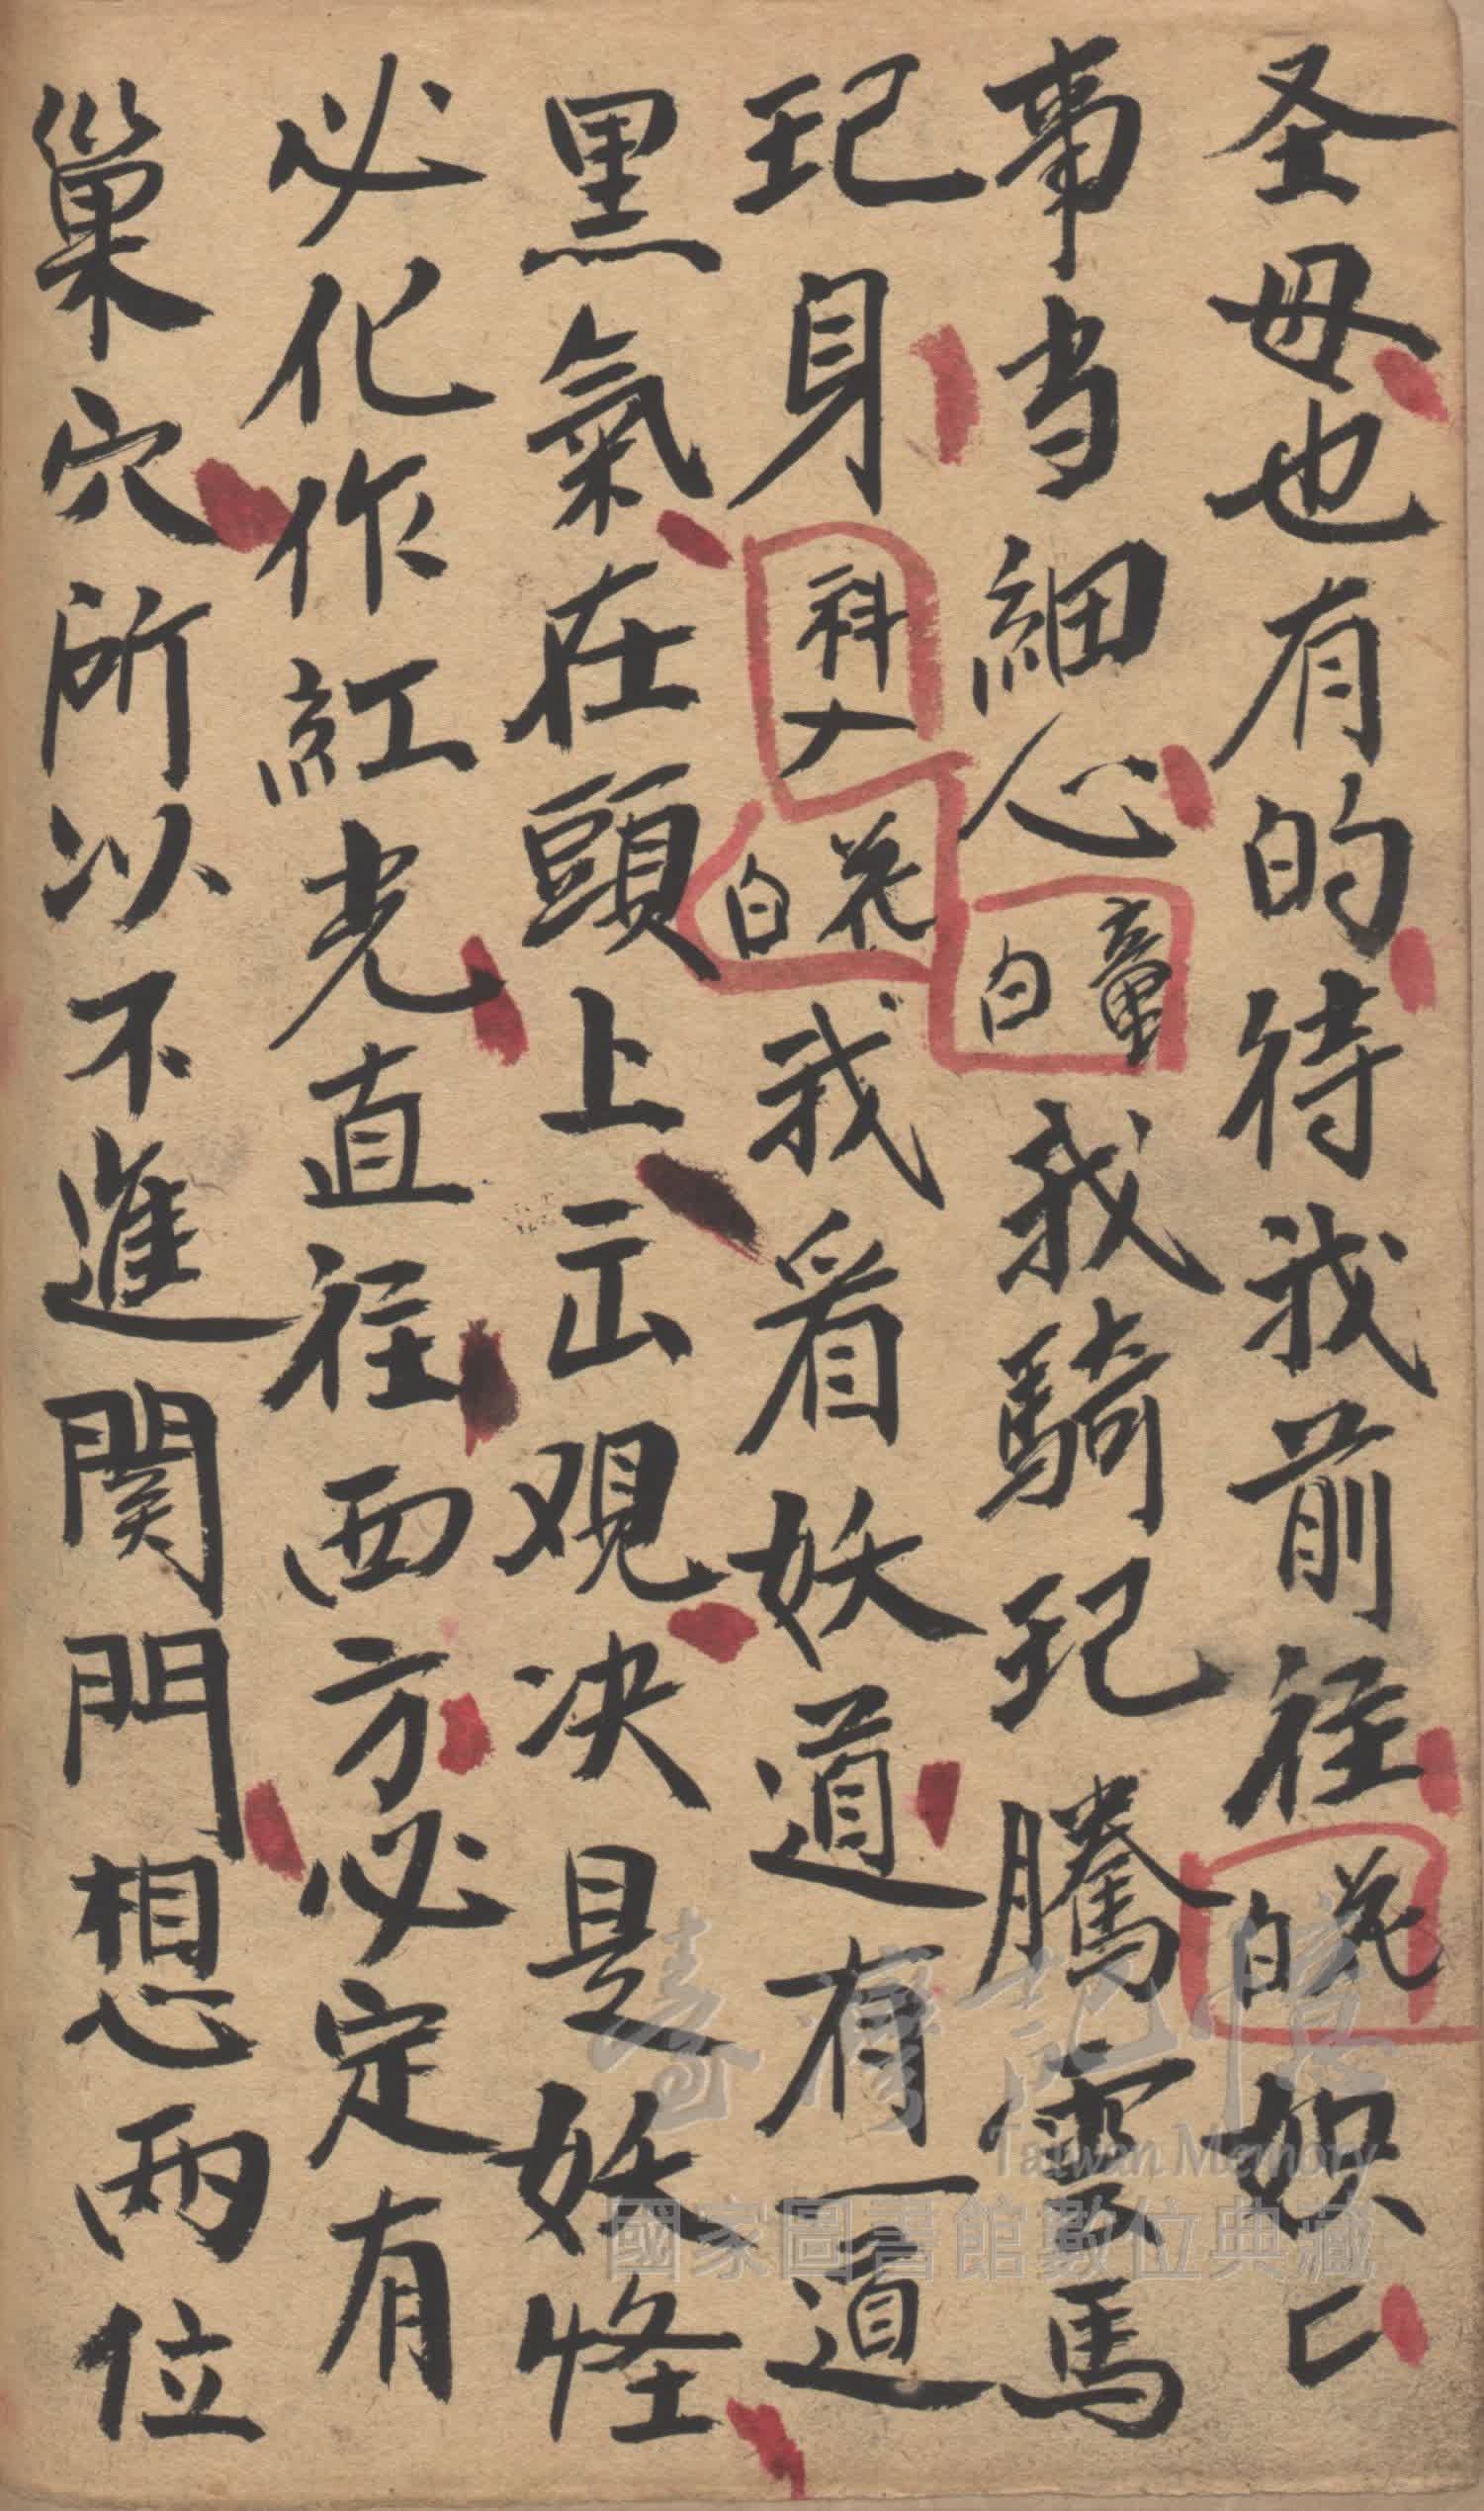 圣母也有的待我前往花白妖匕
事当細心童白我騎玘騰雲馬
玘身科介花白我看妖道有一道
黑氣在頭上出观决是妖怪
必化作紅光直往西方必定有
巢穴所以不進関門想两位
臺灣記憶
Taiwan Memory
國家圖書館數位典藏